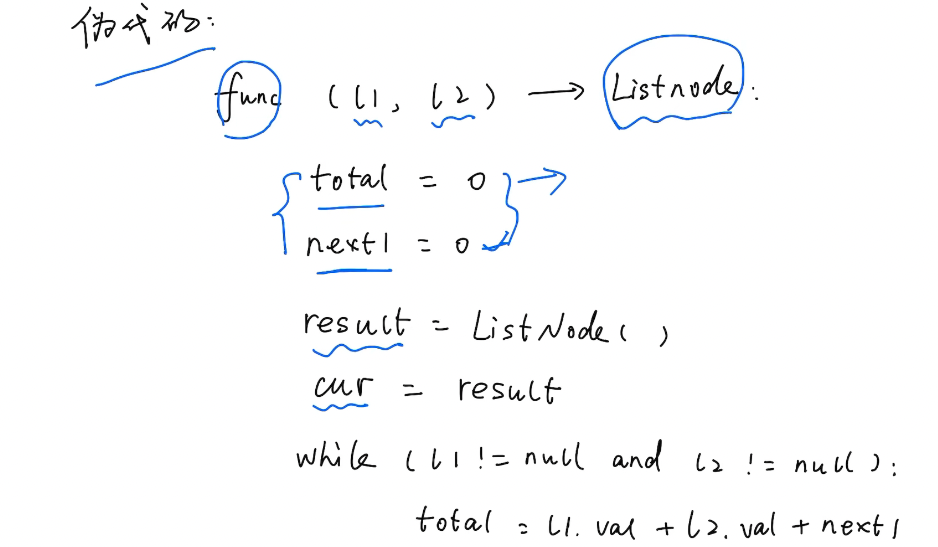 伪代码:
func (l1, l2) → Listnode:
total = 0
next1 = 0
result = ListNode( )
cur = result
while (l1 != null and l2 != null):
total = l1.val + l2.val + next1